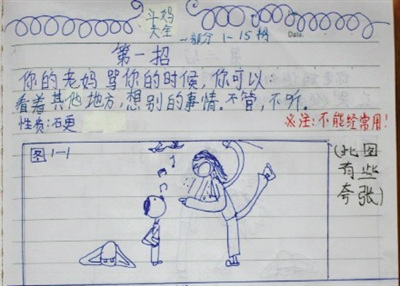 斗妈
大全
一部分1-15招
Date.
第一招
你的老妈骂你的时候,你可以
看着其他地方,想别的事情.不管,不听.
性质:石更
※注:不能经常用!
图1-1
(此图
有些
夸张)